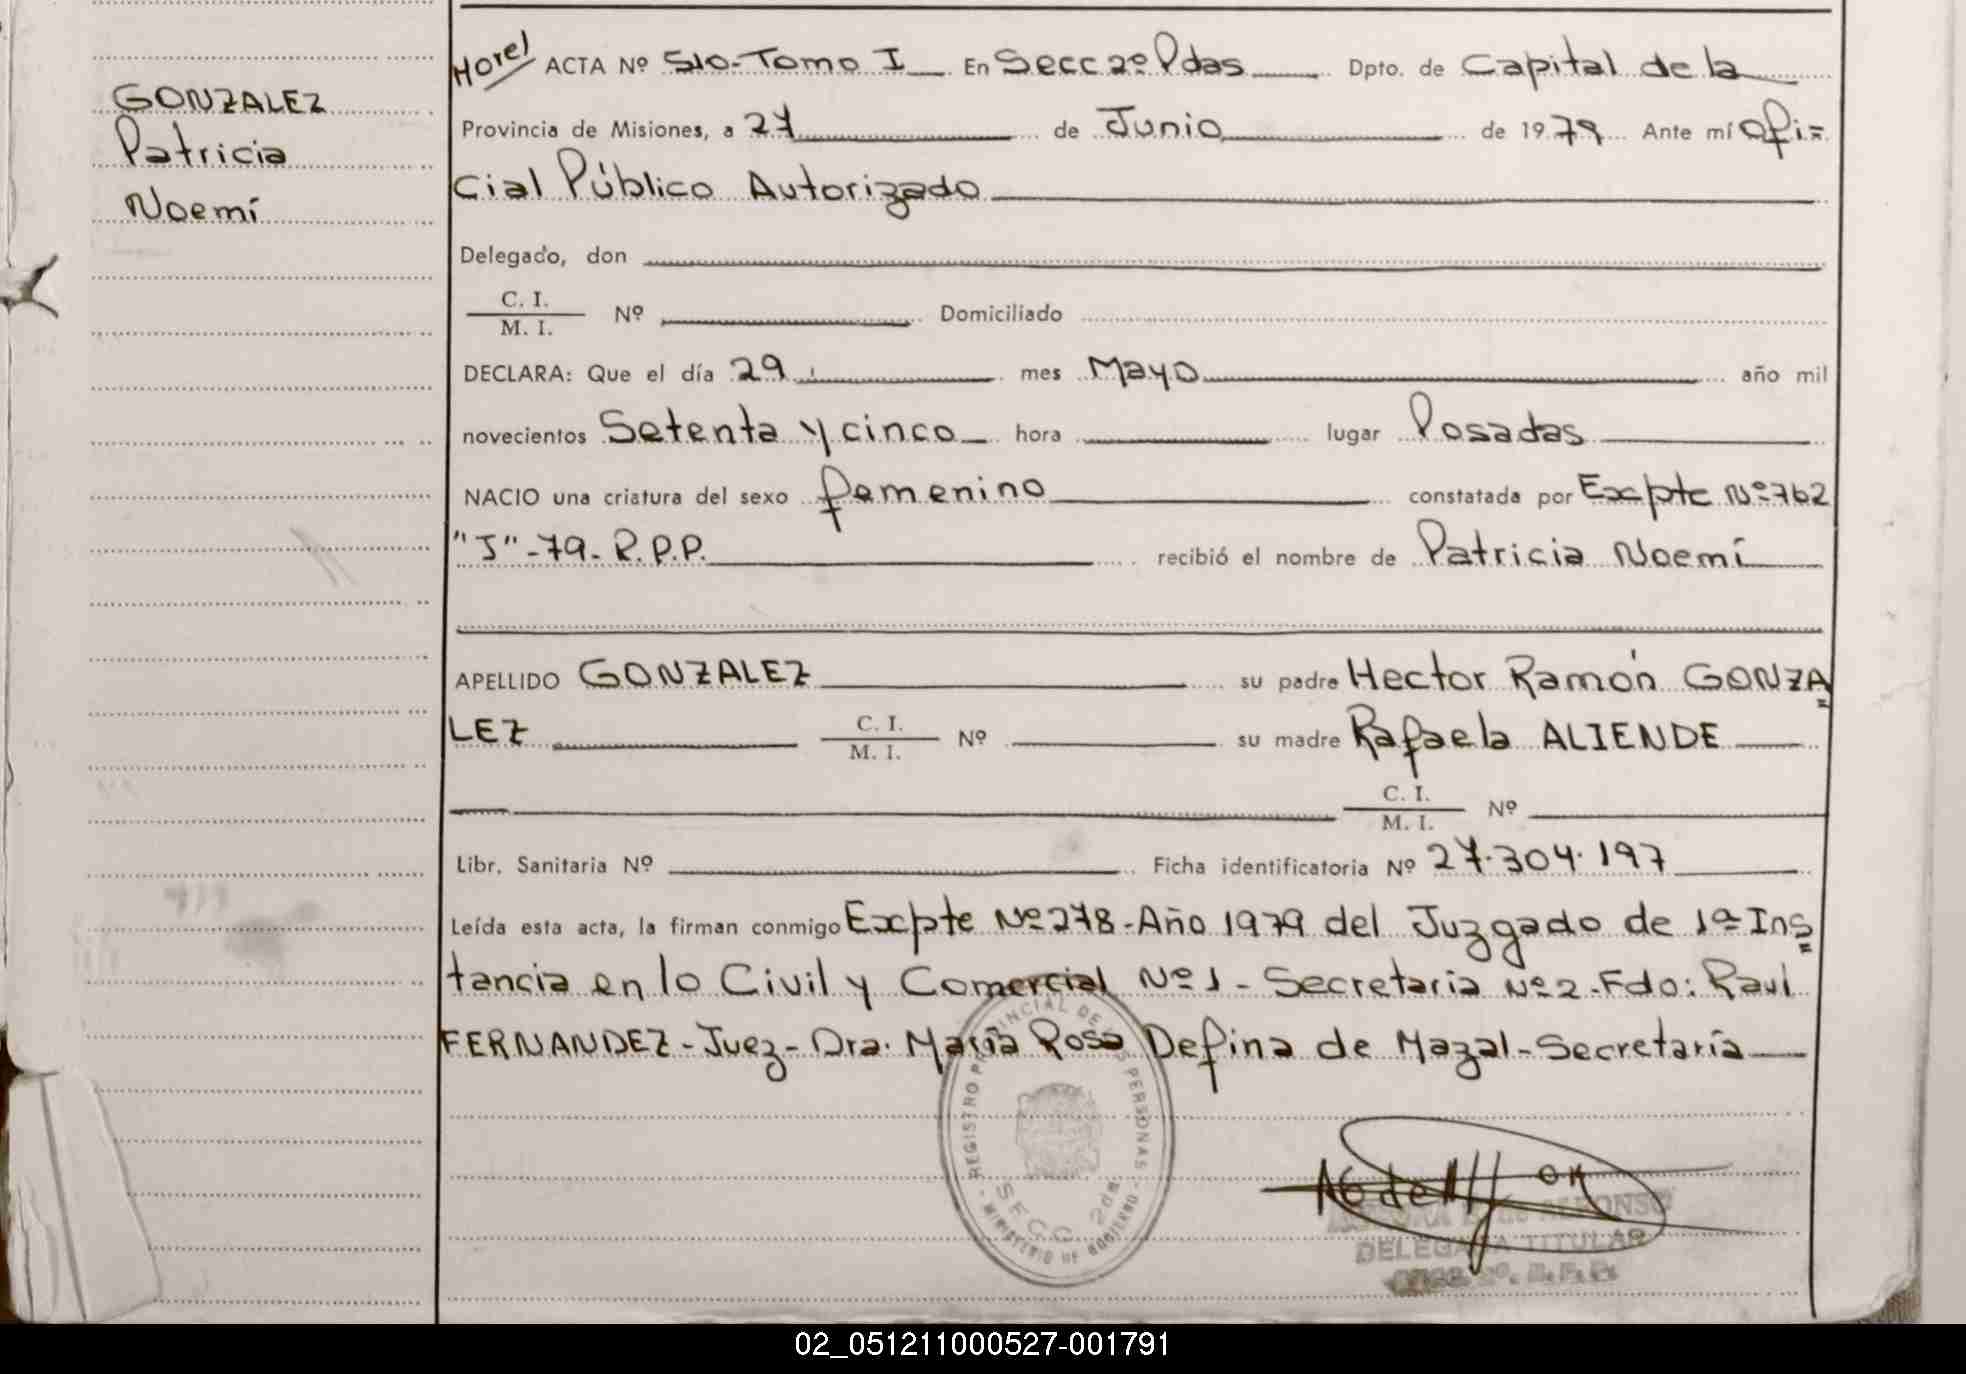 GONZALEZ
Patricia
Noemí
ACTA Nº 510-Tomo I En Secc 2º Pdas Dpto. de Capital de la
Provincia de Misiones, a 27 de Junio de 1979 Ante mí Ofi=
cial Público Autorizado
Delegado, don
C. I.
M. I. Nº Domiciliado
DECLARA: Que el día 29 mes Mayo año mil
novecientos Setenta y cinco hora lugar Posadas
NACIO una criatura del sexo femenino constatada por Excpte Nº 762
"J"-79-R.P.P. recibió el nombre de Patricia Noemí
APELLIDO GONZALEZ su padre Hector Ramón GONZA
LEZ C. I. M. I. Nº su madre Rafaela ALIENDE
C. I.
M. I. Nº
Libr. Sanitaria Nº Ficha identificatoria Nº 27.304.197
Leída esta acta, la firman conmigo Excpte Nº 278-Año 1979 del Juzgado de 1ª Ins
tancia en lo Civil y Comercial Nº 1 - Secretaria Nº 2-Fdo: Raul
FERNANDEZ-Juez-Dra. María Rosa Defina de Mazal-Secretaría
REGISTRO PROVINCIAL DE LAS PERSONAS
SECC 2da
MINISTERIO DE GOBIERNO
ALFONSO
DELEGADA TITULAR
02_051211000527-001791